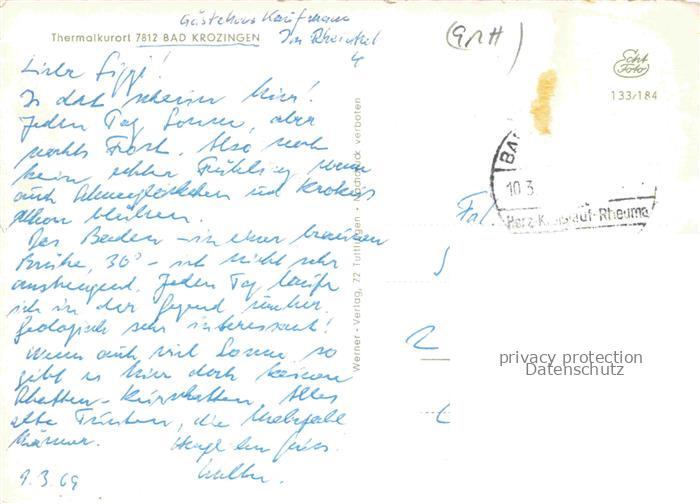 Gästehaus Kaufmann
Thermalkurort 7812 BAD KROZINGEN
Im Rheintal
4
Liebe Sippe!
Is dat scheen hier!
Jeden Tag Sonne, aber
nachts Frost. Also noch
kein echter Frühling wenn
auch Schneeglöckchen und Krokus
schon blühen.
Das Baden – in einer braunen
Brühe, 36° – ist nicht sehr
anstrengend. Jeden Tag laufe
ich in der Gegend umher.
Geologisch sehr interessant!
Wenn auch viel Sonne, so
gibt es hier doch keinen
Schatten - Kurschatten. Alles
alte Tanten, die Mehrzahl
Männer. Herzl. Gruss
Walter.
9.3.69
Werner - Verlag, 72 Tuttlingen - Nachdruck verboten
(GRH)
Echt Foto
133/184
BA
10.3
Herz-Kreislauf-Rheuma
privacy protection
Datenschutz